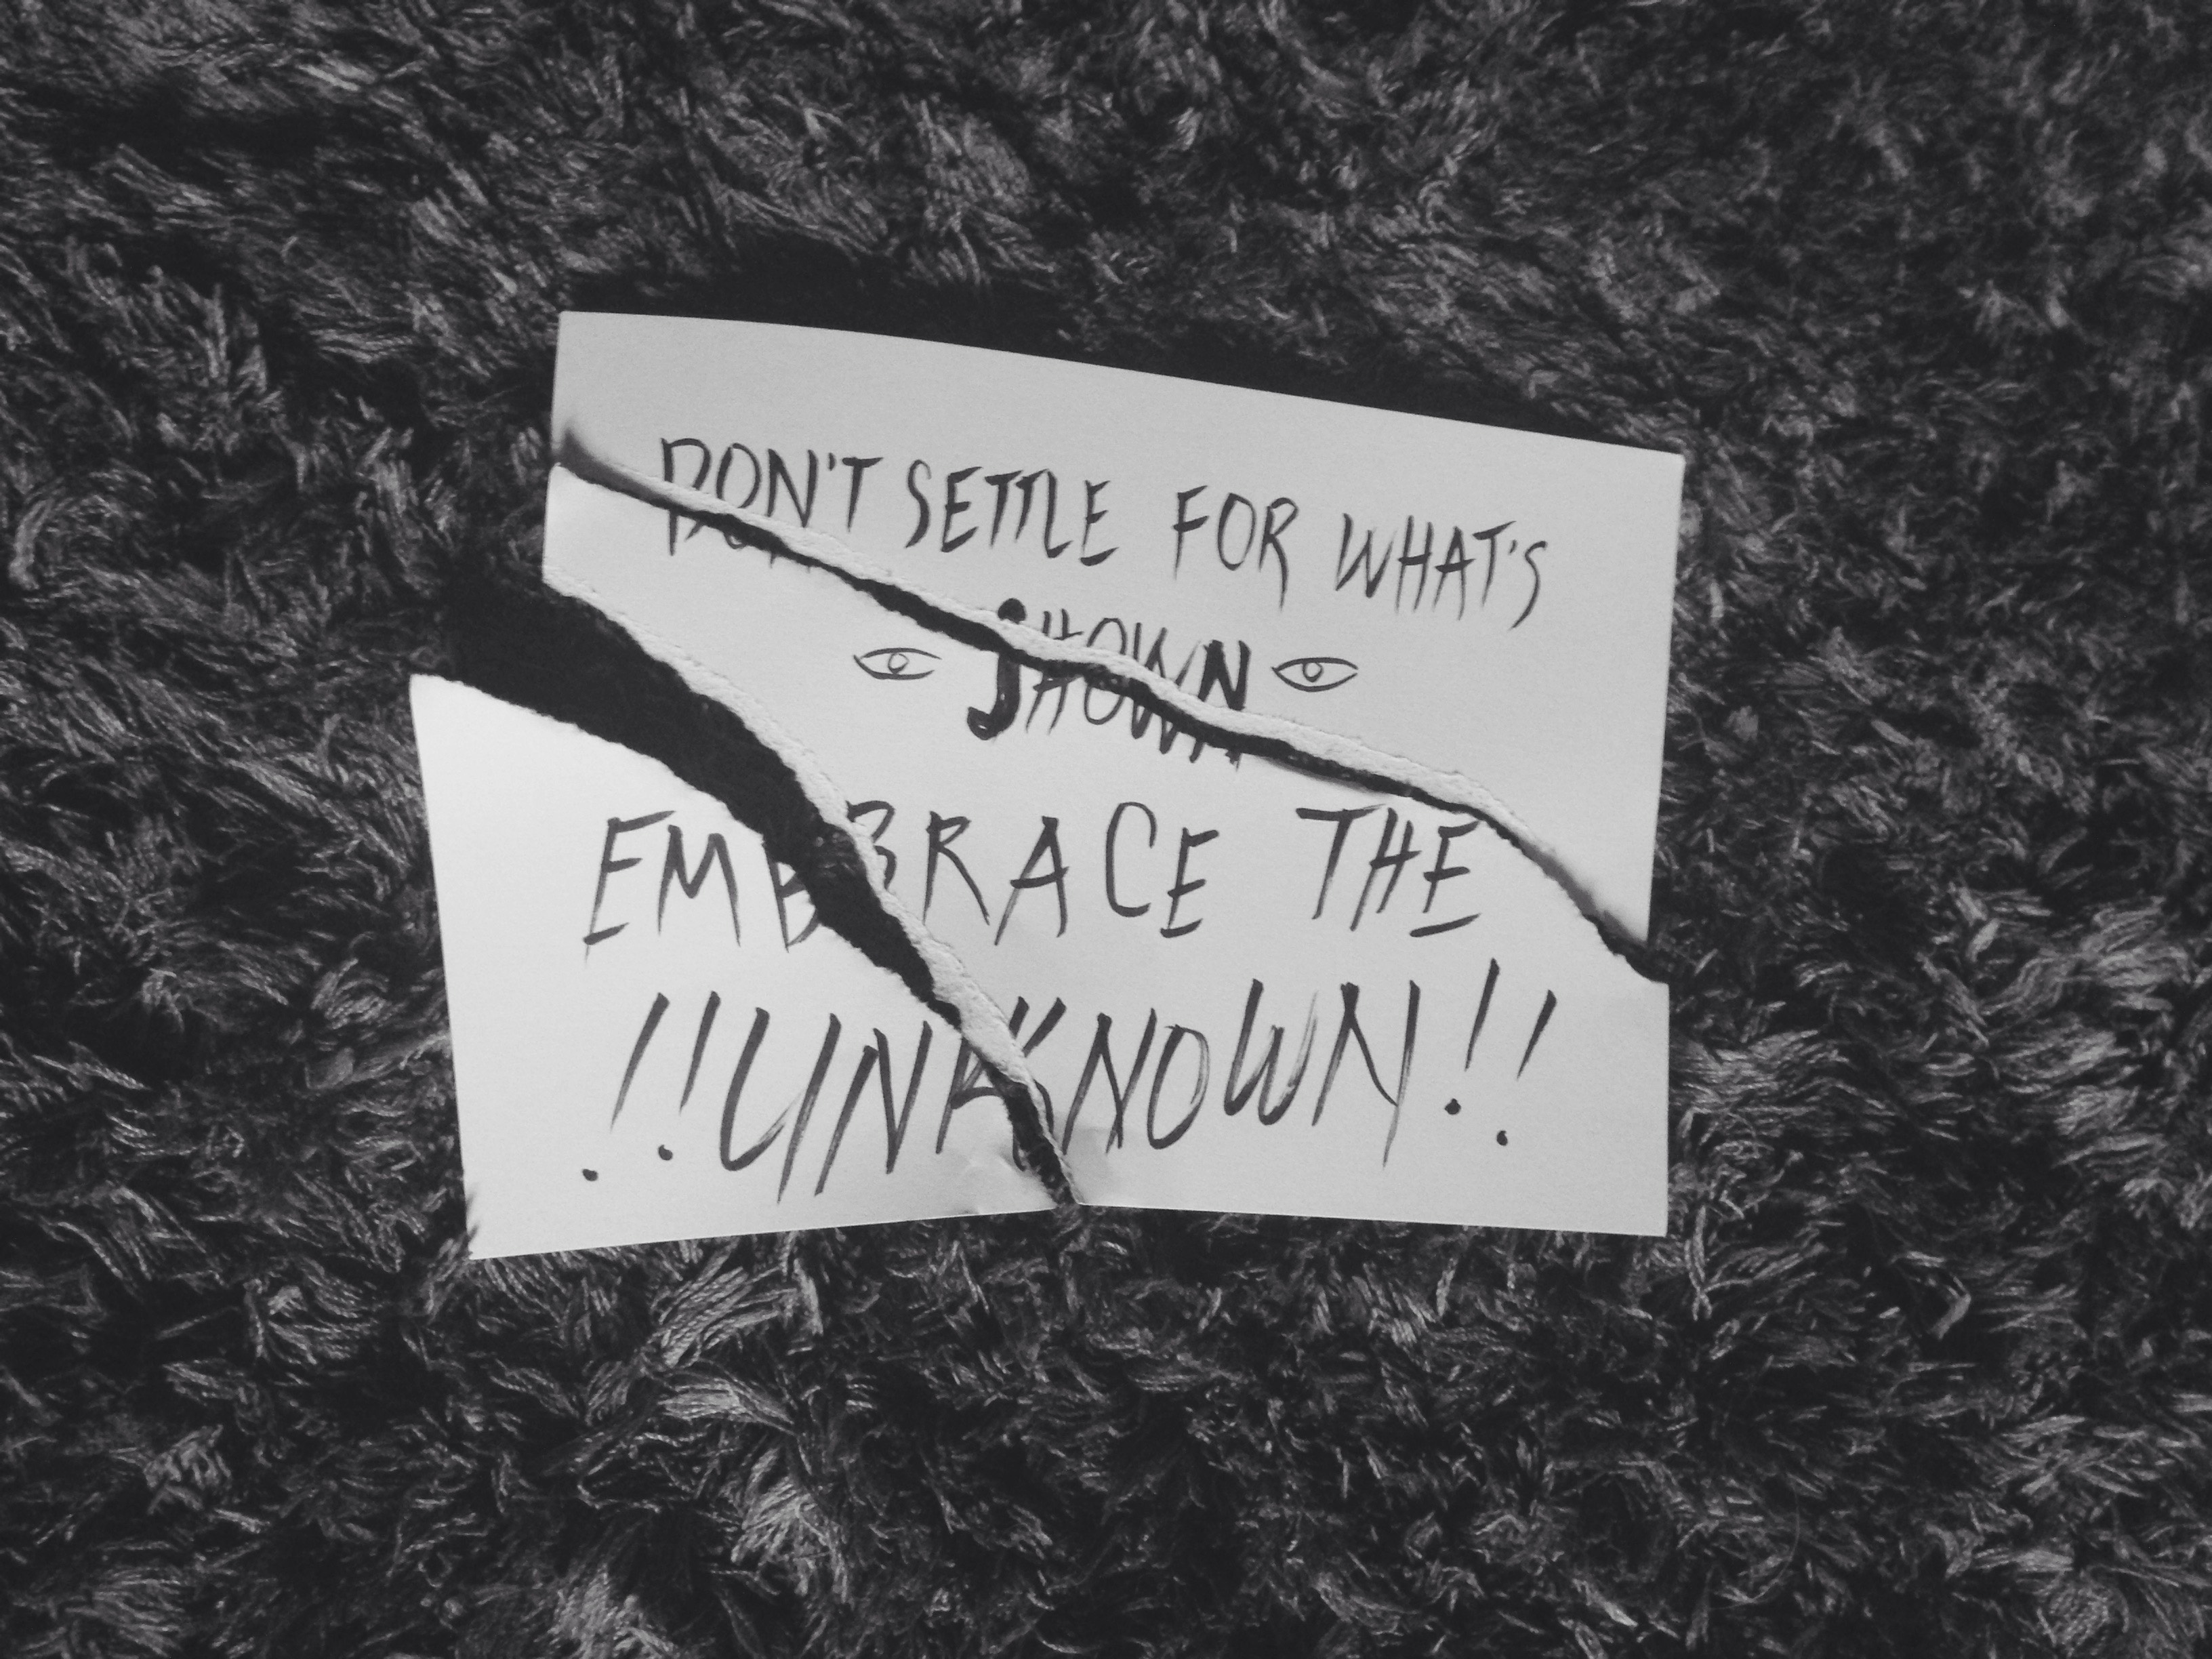 DON'T SETTLE FOR WHAT'S
SHOWN
EMBRACE THE
!!UNKNOWN!!